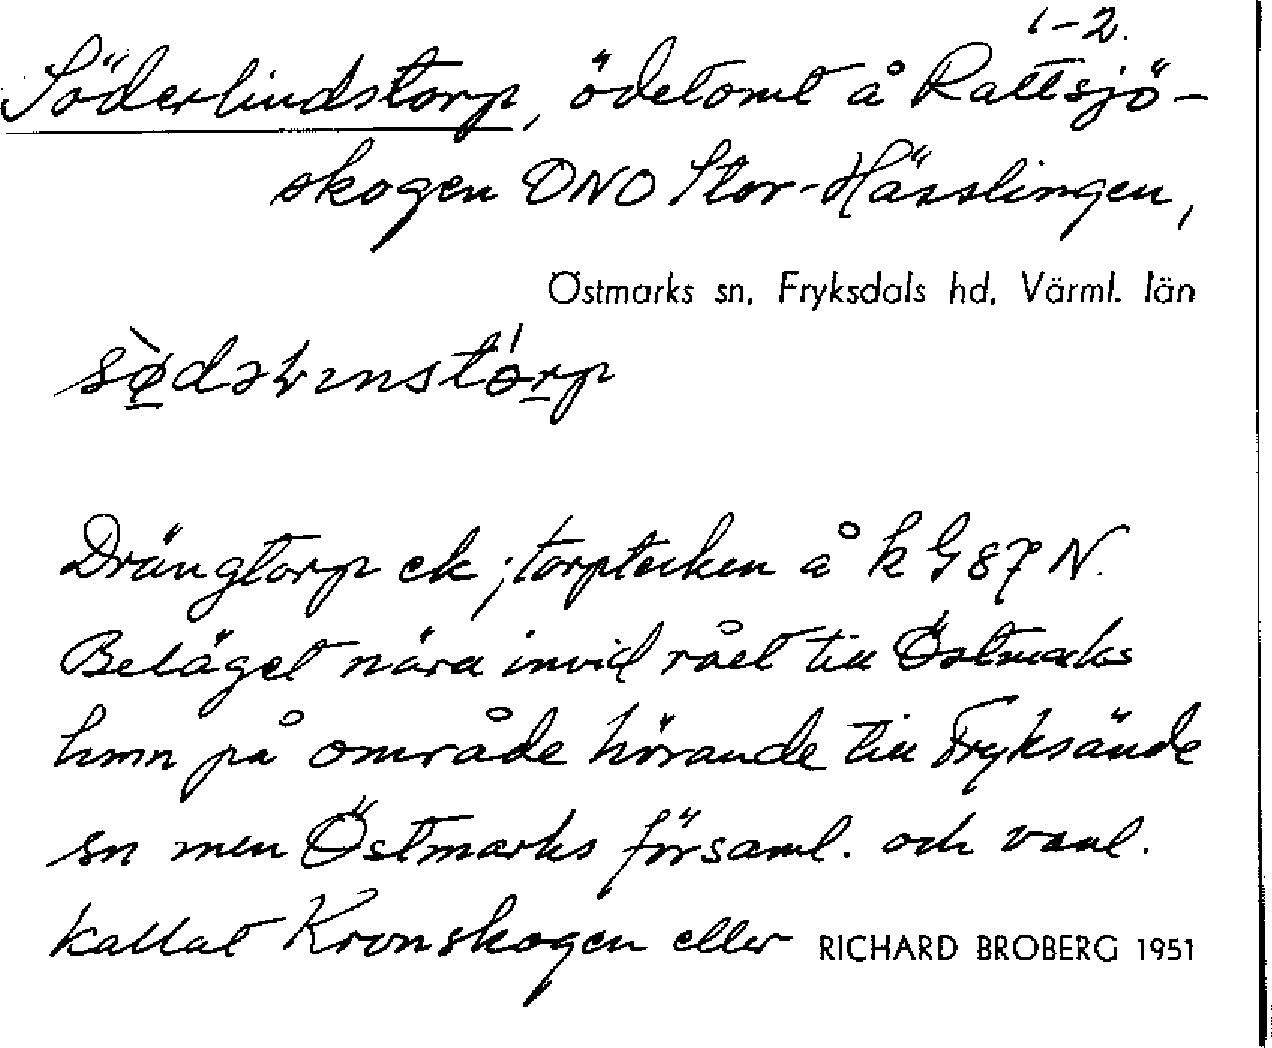 1-2.
Söderlindstorp, ödetomt å Rattsjö-
skogen ONO Stor-Hässlingen,
Östmarks sn, Fryksdals hd, Värml. län
Drängtorp ek ; torptecken å k G 87 N.
Beläget nära invid rået till Östmarks
hmn på område hörande till Fryksände
sn men Östmarks församl. och vanl.
kallat Kronskogen eller RICHARD BROBERG 1951